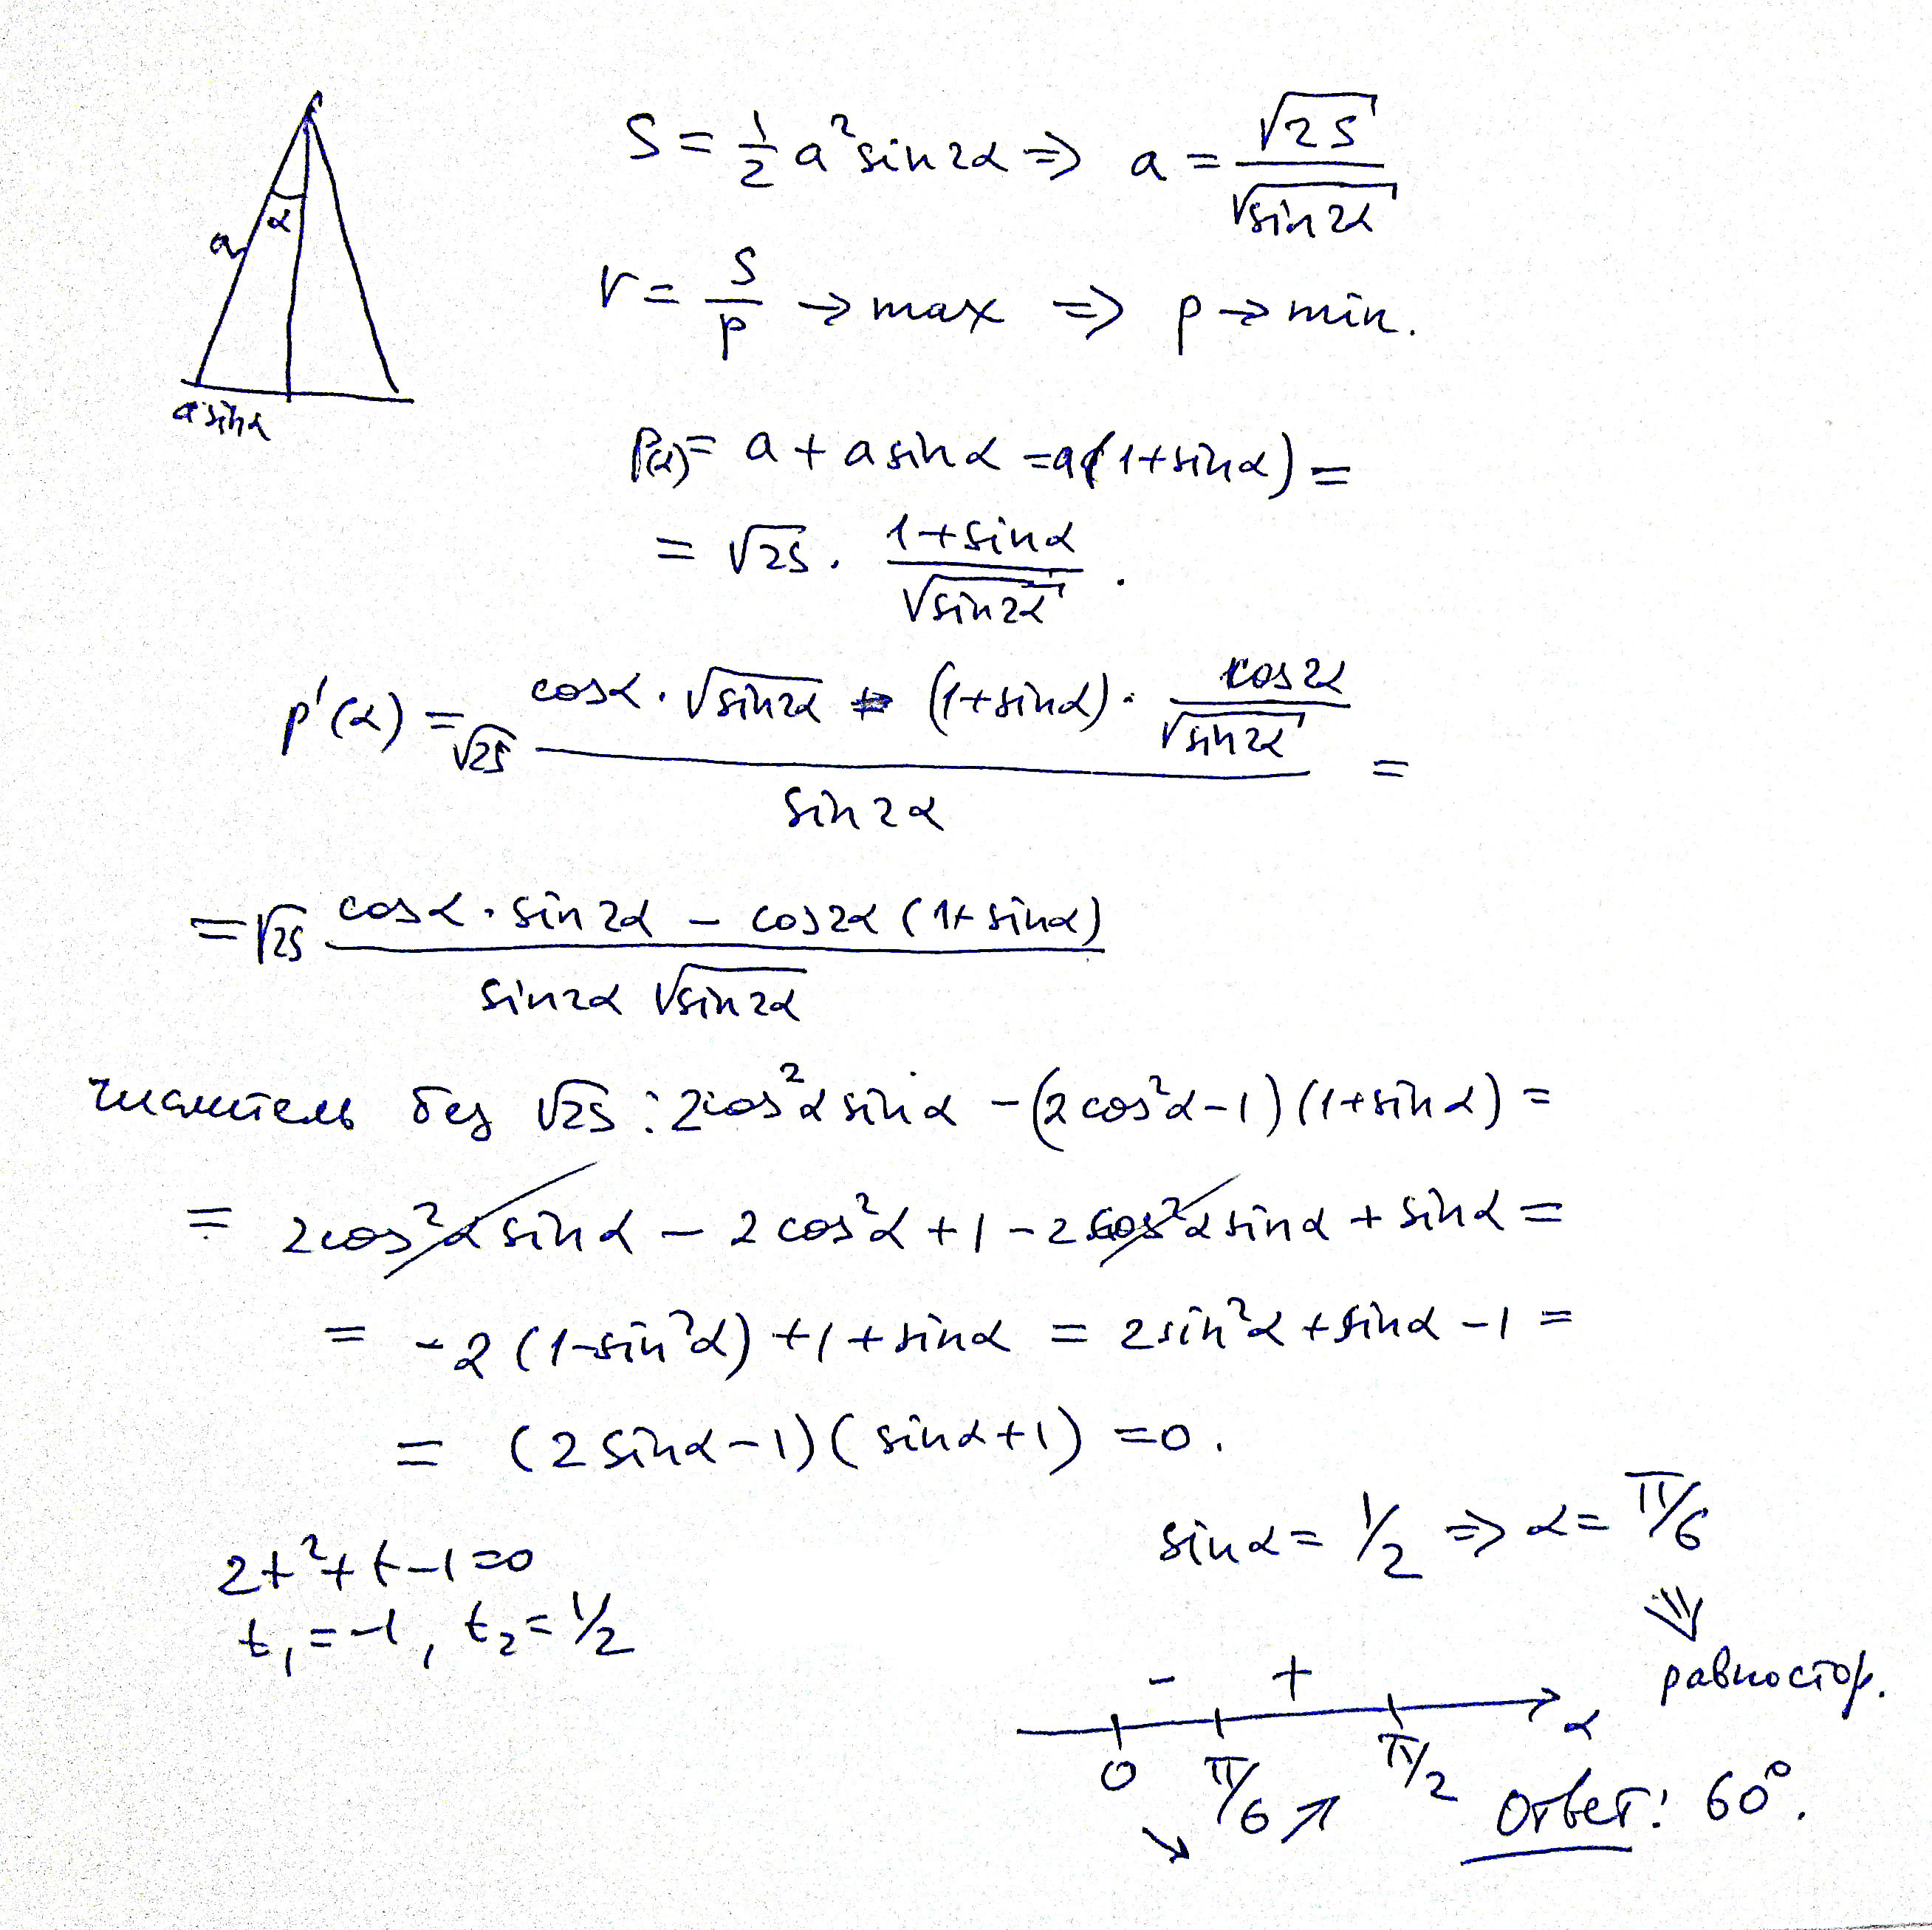 S = 1/2 a² sin 2α ⇒ a = √2S / √sin 2α
a α
a sin α
r = S/p → max ⇒ p → min.
p(α) = a + a sin α = a(1 + sin α) =
= √2S · (1 + sin α) / √sin 2α .
p'(α) = √2S (cos α · √sin 2α − (1 + sin α) · cos 2α / √sin 2α) / sin 2α =
= √2S (cos α · sin 2α − cos 2α (1 + sin α)) / (sin 2α √sin 2α)
числитель без √2S : 2cos²α sin α − (2cos²α − 1)(1 + sin α) =
= 2cos²α sin α − 2cos²α + 1 − 2cos²α sin α + sin α =
= −2(1 − sin²α) + 1 + sin α = 2sin²α + sin α − 1 =
= (2 sin α − 1)(sin α + 1) = 0.
sin α = 1/2 ⇒ α = π/6
2t² + t − 1 = 0
t₁ = −1, t₂ = 1/2
⇓
равностор.
− +
0 π/6 π/2 α
↘ ↗
Ответ: 60°.